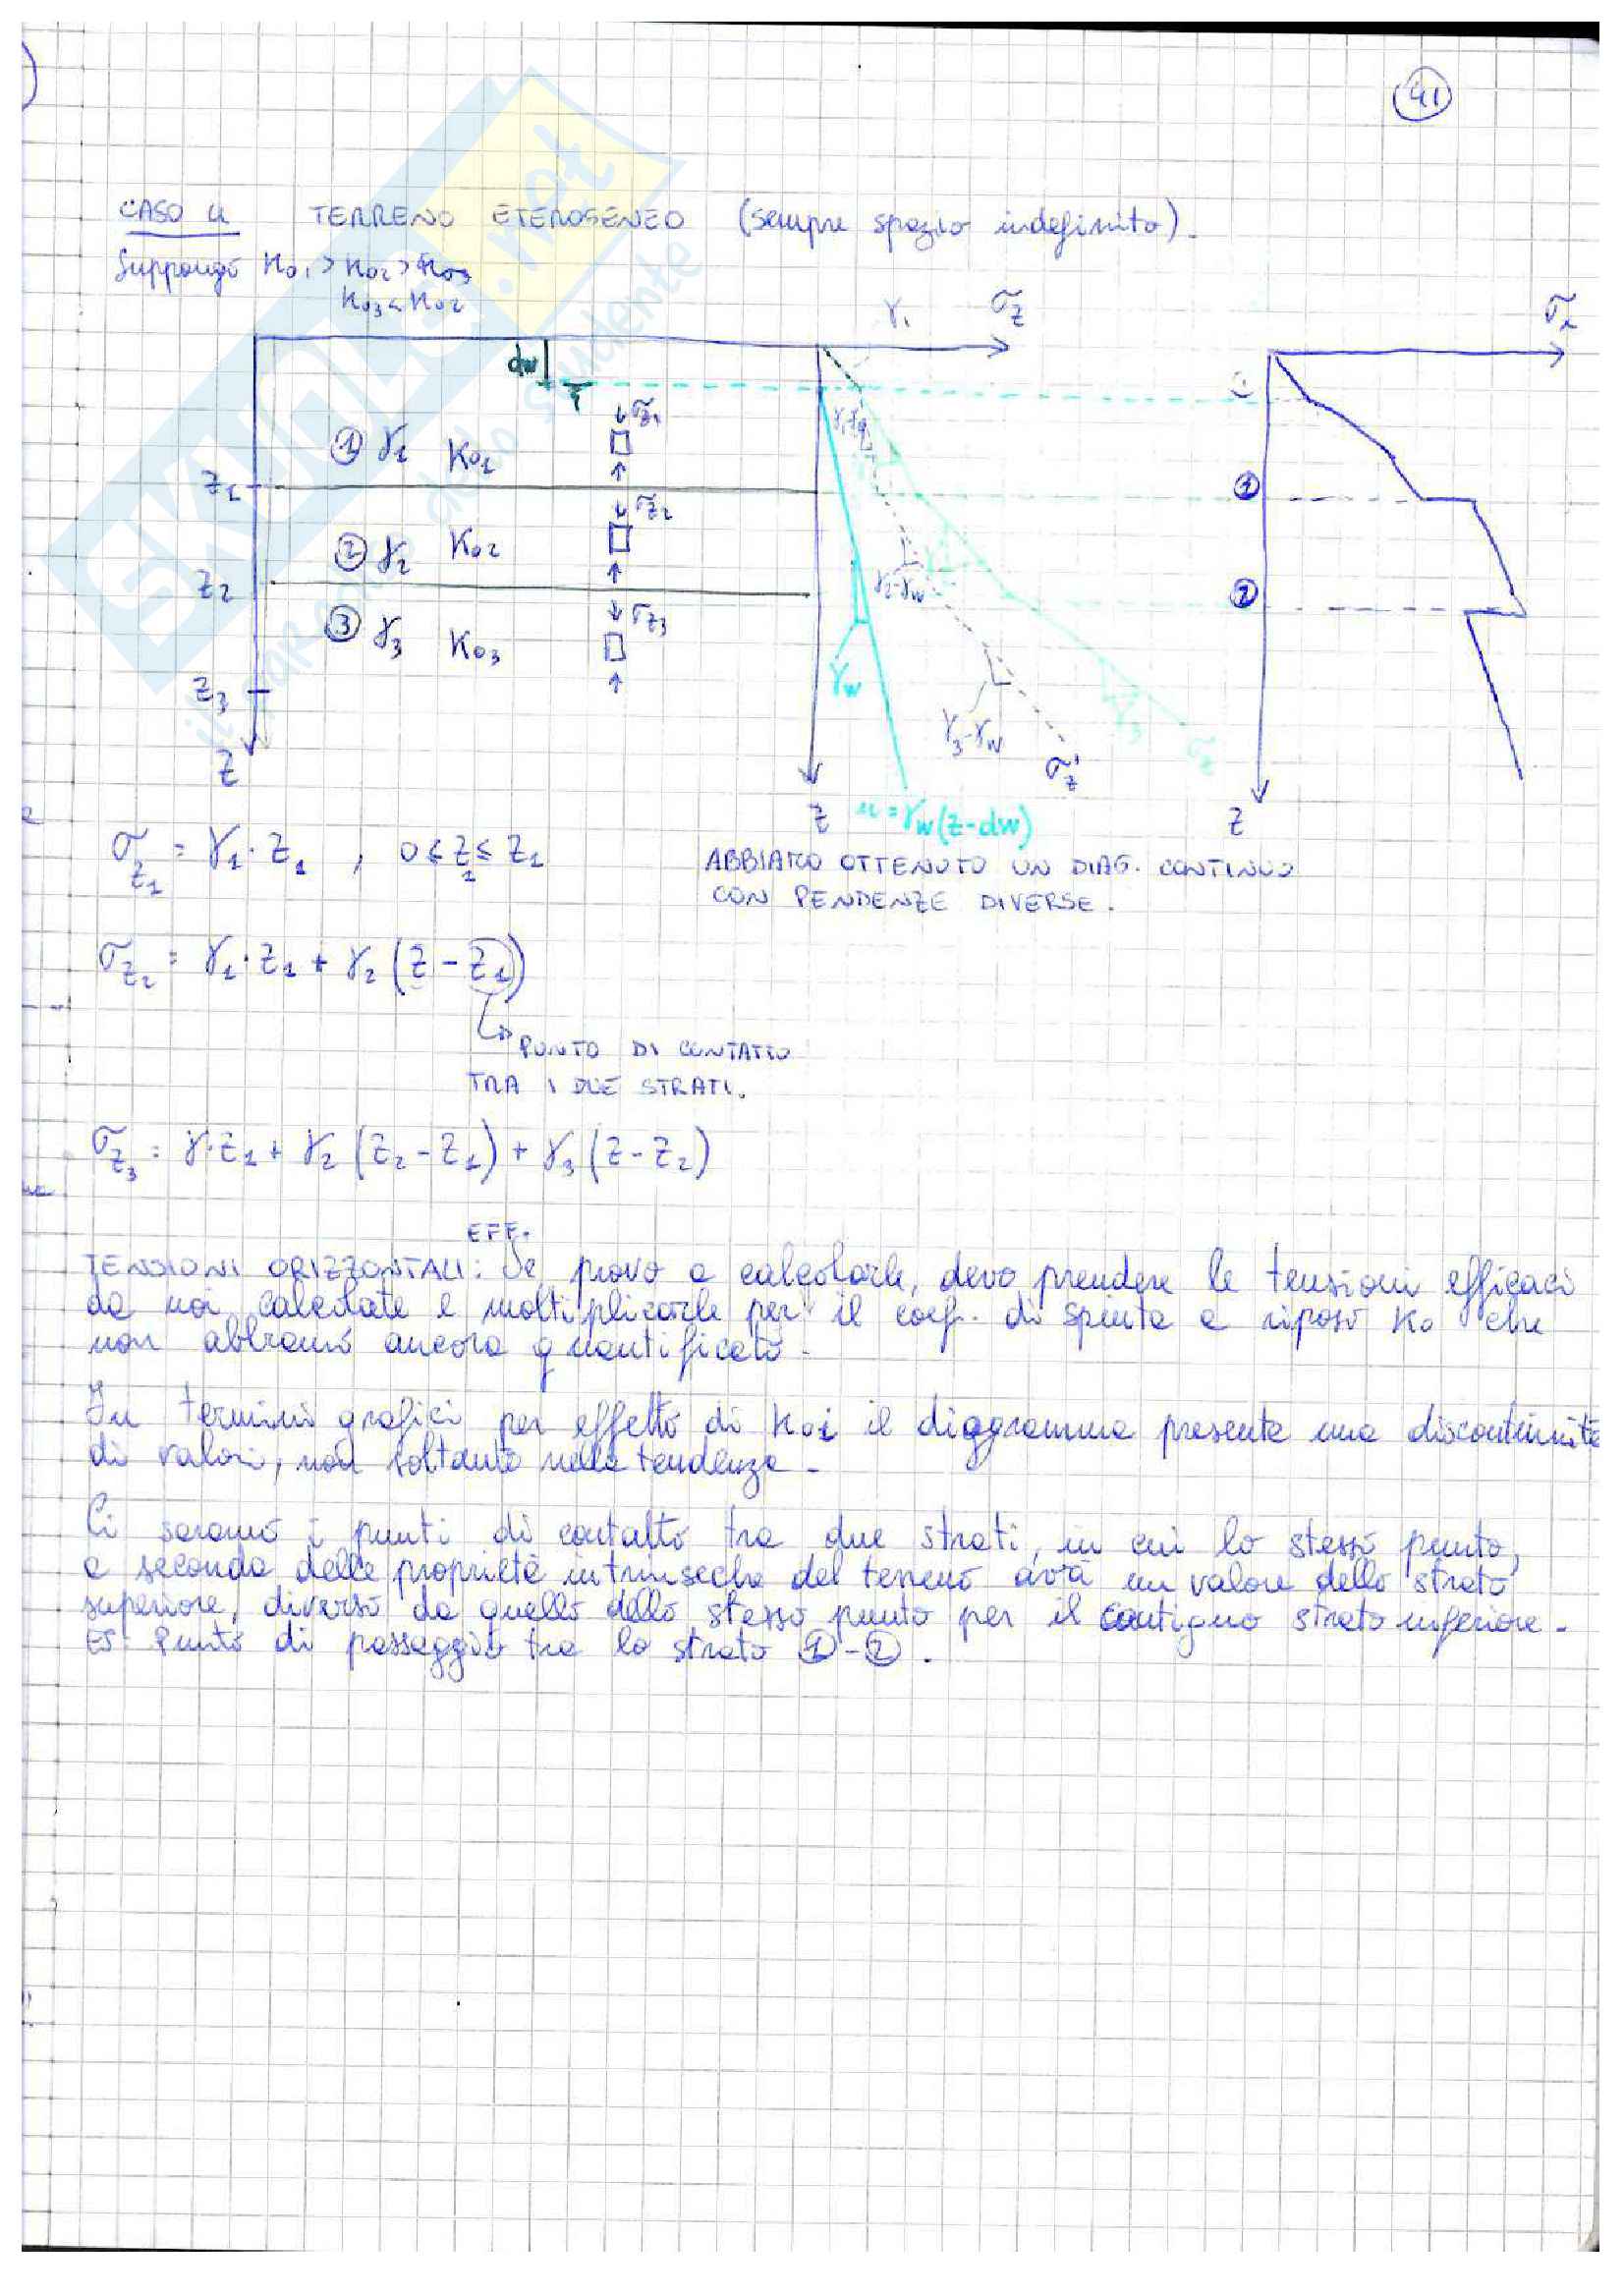 41
CASO 4 TERRENO ETEROGENEO (sempre spazio indefinito).
Suppongo K01 > K02 > K03
K03 < K02
σz
σx
γ1
dw
① γ1 K01 σz1
z1
② γ2 K02 σz2
z2
③ γ3 K03 σz3
z3
z
γ2-γw
γw
γ3-γw
γ3
σz
σz'
①
②
z
z
u = γw(z-dw)
σz1 = γ1·z1 , 0 ≤ z1 ≤ z1
ABBIAMO OTTENUTO UN DIAG. CONTINUO
CON PENDENZE DIVERSE.
σz2 = γ1·z1 + γ2 (z - z1)
PUNTO DI CONTATTO
TRA I DUE STRATI.
σz3 = γ·z1 + γ2 (z2 - z1) + γ3 (z - z2)
EFF.
TENSIONI ORIZZONTALI: Se provo a calcolarle, devo prendere le tensioni efficaci
da noi calcolate e moltiplicarle per il coef. di spinta a riposo K0 che
non abbiamo ancora quantificato.
In termini grafici per effetto di K0i il diagramma presenta una discontinuità
di valori, non soltanto nella tendenza.
Ci saranno i punti di contatto tra due strati, in cui lo stesso punto,
a seconda delle proprietà intrinseche del terreno avrà un valore dello strato
superiore, diverso da quello dello stesso punto per il contiguo strato inferiore.
ES: Punto di passaggio tra lo strato ①-②.
SKUOLA.net
il paradiso dello studente